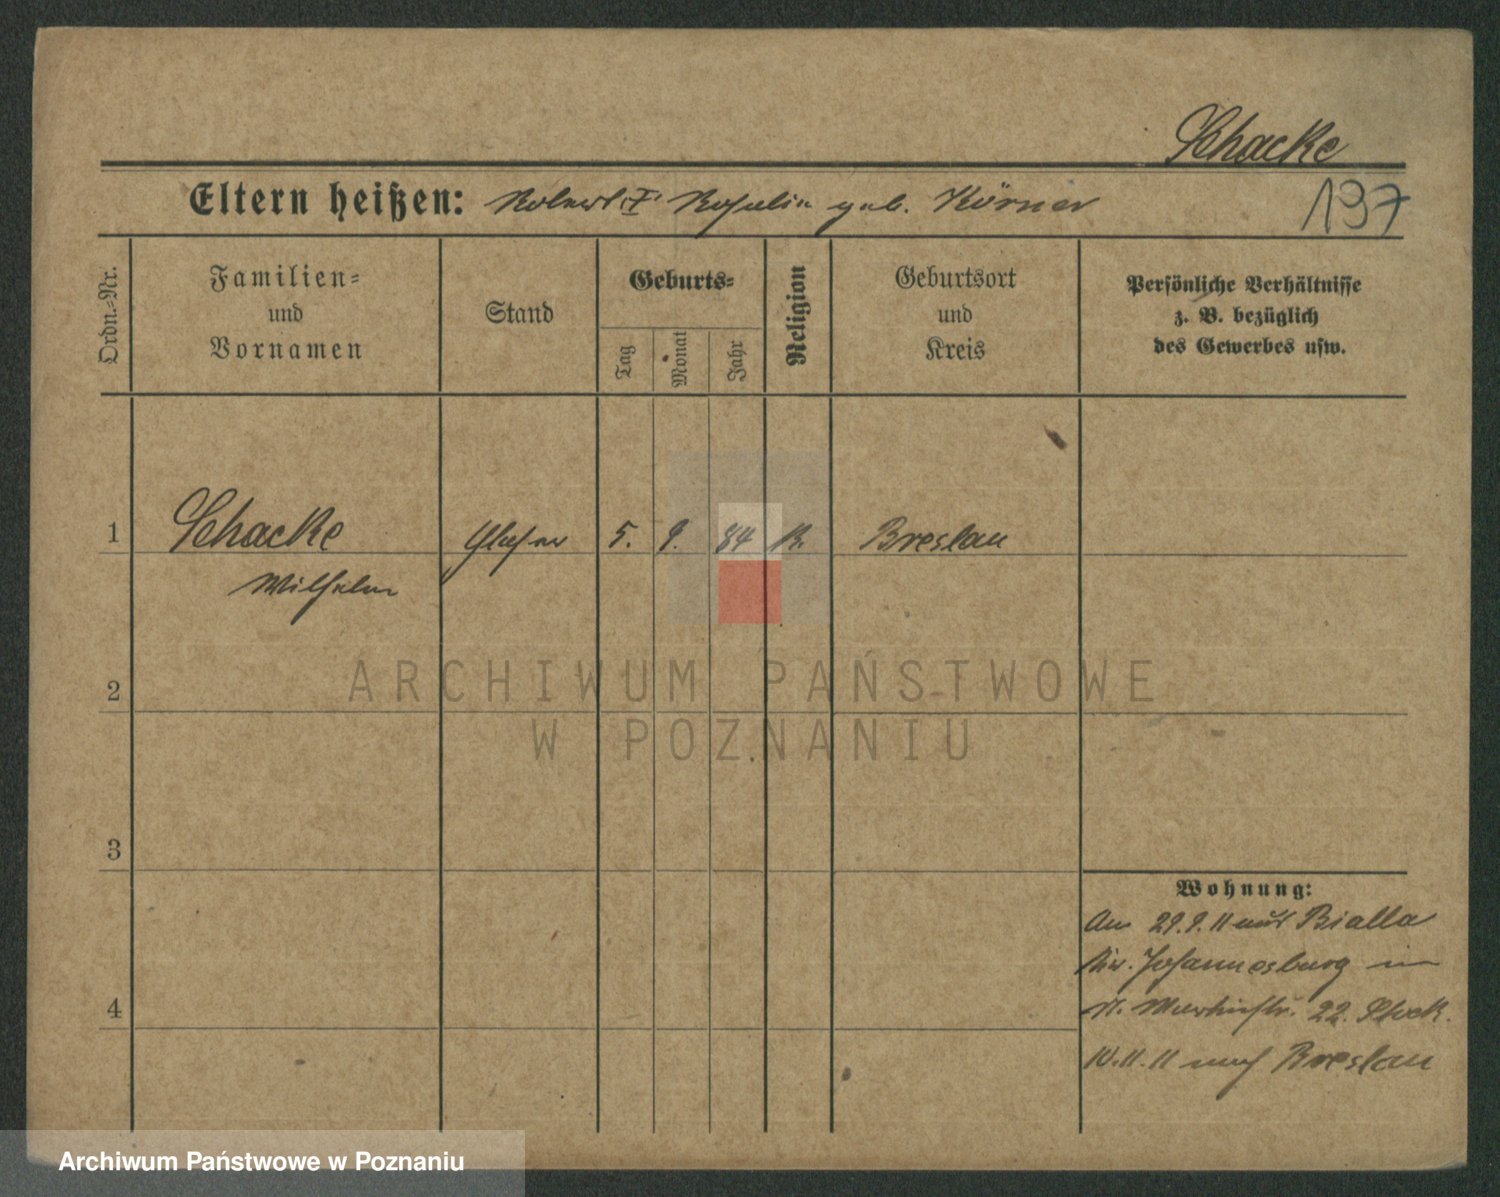 Schacke
Eltern heißen: Robert I. Rosalie geb. Körner
197
Ordn.=Nr.
Familien=
und
Vornamen
Stand
Geburts=
Tag
Monat
Jahr
Religion
Geburtsort
und
Kreis
Persönliche Verhältnisse
z. B. bezüglich
des Gewerbes usw.
1 Schacke Glaser 5. 9. 84 K. Breslau
Wilhelm
ARCHIWUM PAŃSTWOWE
W POZNANIU
2
3
4
Wohnung:
Am 29.9.11 aus Bialla
Kr. Johannesburg in
St. Martinstr. 22. Schack.
10.11.11 nach Breslau
Archiwum Państwowe w Poznaniu